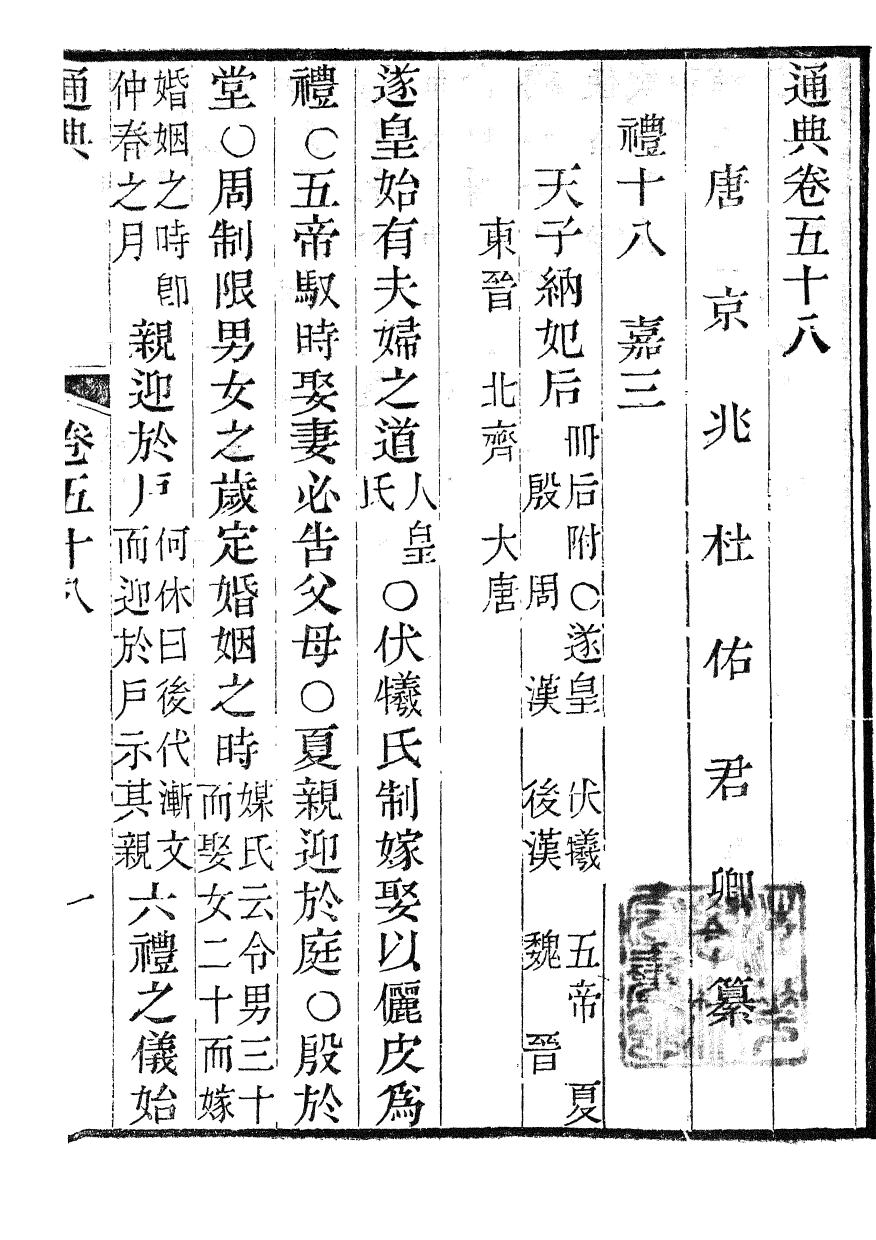 通典卷五十八
唐京兆杜佑君卿纂
禮十八 嘉三
天子納妃后 冊后附○遂皇 伏犧 五帝 夏 殷 周 漢 後漢 魏 晉
東晉 北齊 大唐
遂皇始有夫婦之道 人皇氏 ○伏犧氏制嫁娶以儷皮爲
禮○五帝馭時娶妻必告父母○夏親迎於庭○殷於
堂○周制限男女之歲定婚姻之時 媒氏云令男三十而娶女二十而嫁
婚姻之時卽仲春之月 親迎於戶 何休曰後代漸文而迎於戶示其親 六禮之儀始
通典 卷五十八 一